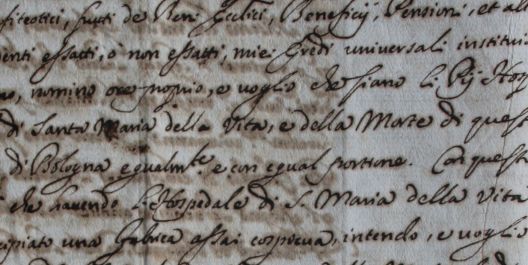 fiteotici, frutti de Beni Eccl.ici, Beneficij, Pensioni, et al
enti essatti, ò non essatti, miei Eredi universali institui
no, nomino ore proprio, e voglio che siano li Pij Hos
di Santa Maria della Vita, e della Morte di quest
di Bologna egualm.te e con egual portione. Con quest
che havendo l'Hospedale di S. Maria della Vita
cipiato una fabrica assai cospicua, intendo, e voglio